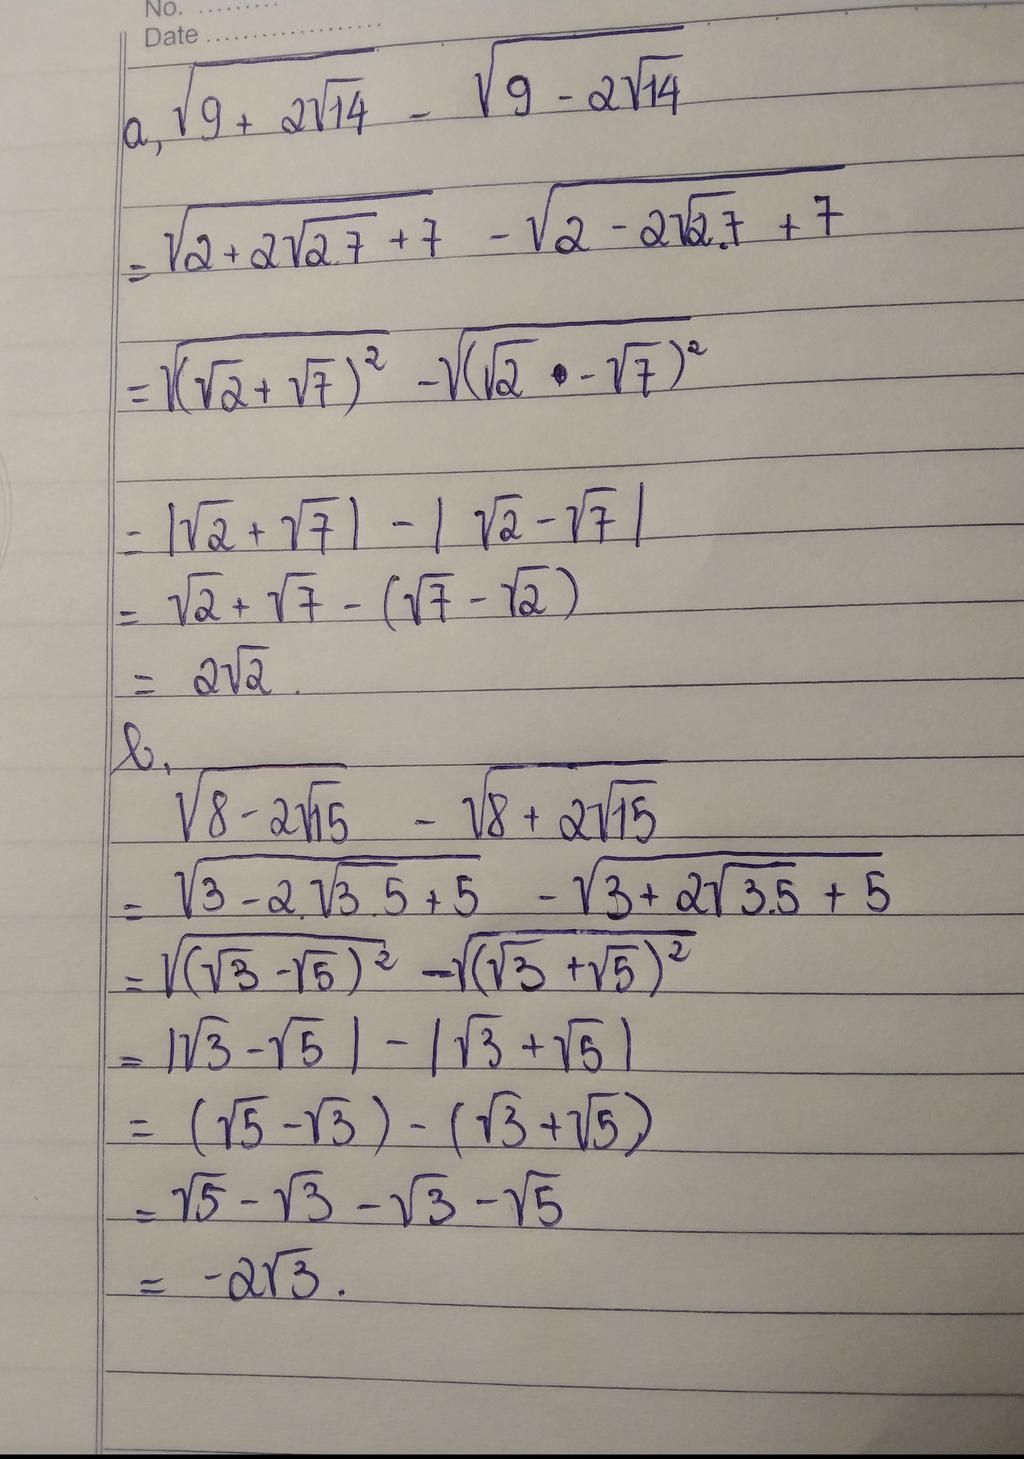 No. ..........
Date ....................
a, √(9 + 2√14) - √(9 - 2√14)
= √(2 + 2√2.7 + 7) - √(2 - 2√2.7 + 7)
= √(√2 + √7)² - √(√2 - √7)²
= |√2 + √7| - |√2 - √7|
= √2 + √7 - (√7 - √2)
= 2√2.
b,
√(8 - 2√15) - √(8 + 2√15)
= √(3 - 2.√3.5 + 5) - √(3 + 2√3.5 + 5)
= √(√3 - √5)² - √(√3 + √5)²
= |√3 - √5| - |√3 + √5|
= (√5 - √3) - (√3 + √5)
= √5 - √3 - √3 - √5
= -2√3.